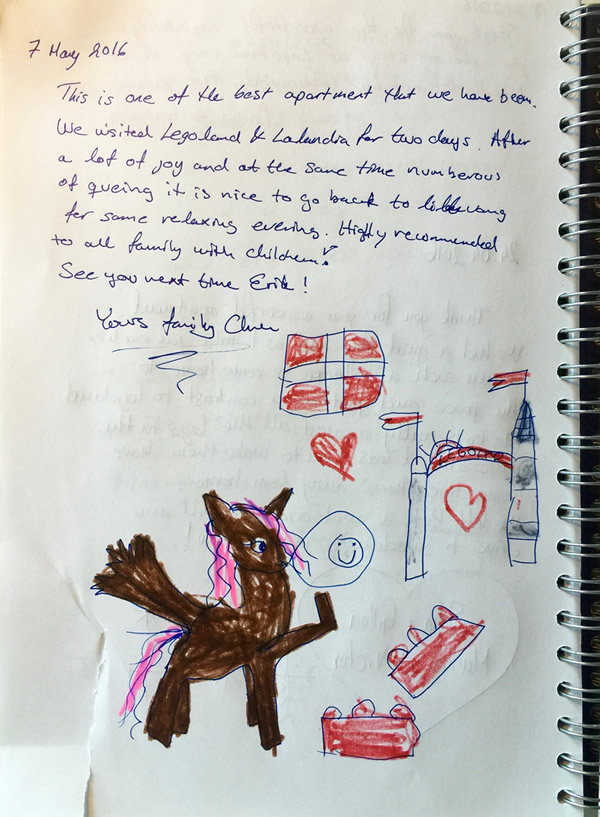 7 May 2016
This is one of the best apartment that we have been.
We visited Legoland & Lalandia for two days. After
a lot of joy and at the same time numberous
of queing it is nice to go back to
for some relaxing evening. Highly recommended
to all family with children!
See you next time Erik!
Yours family
LEGOLAND